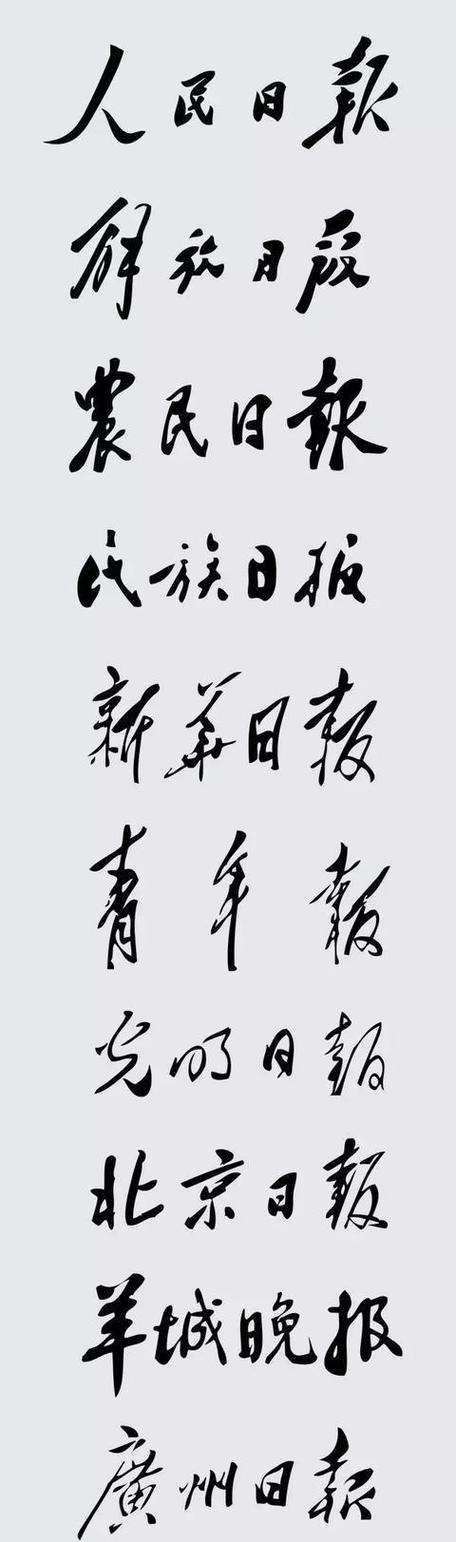 人民日報
解放日报
農民日報
民族日报
新華日報
青年報
光明日報
北京日報
羊城晚报
廣州日報